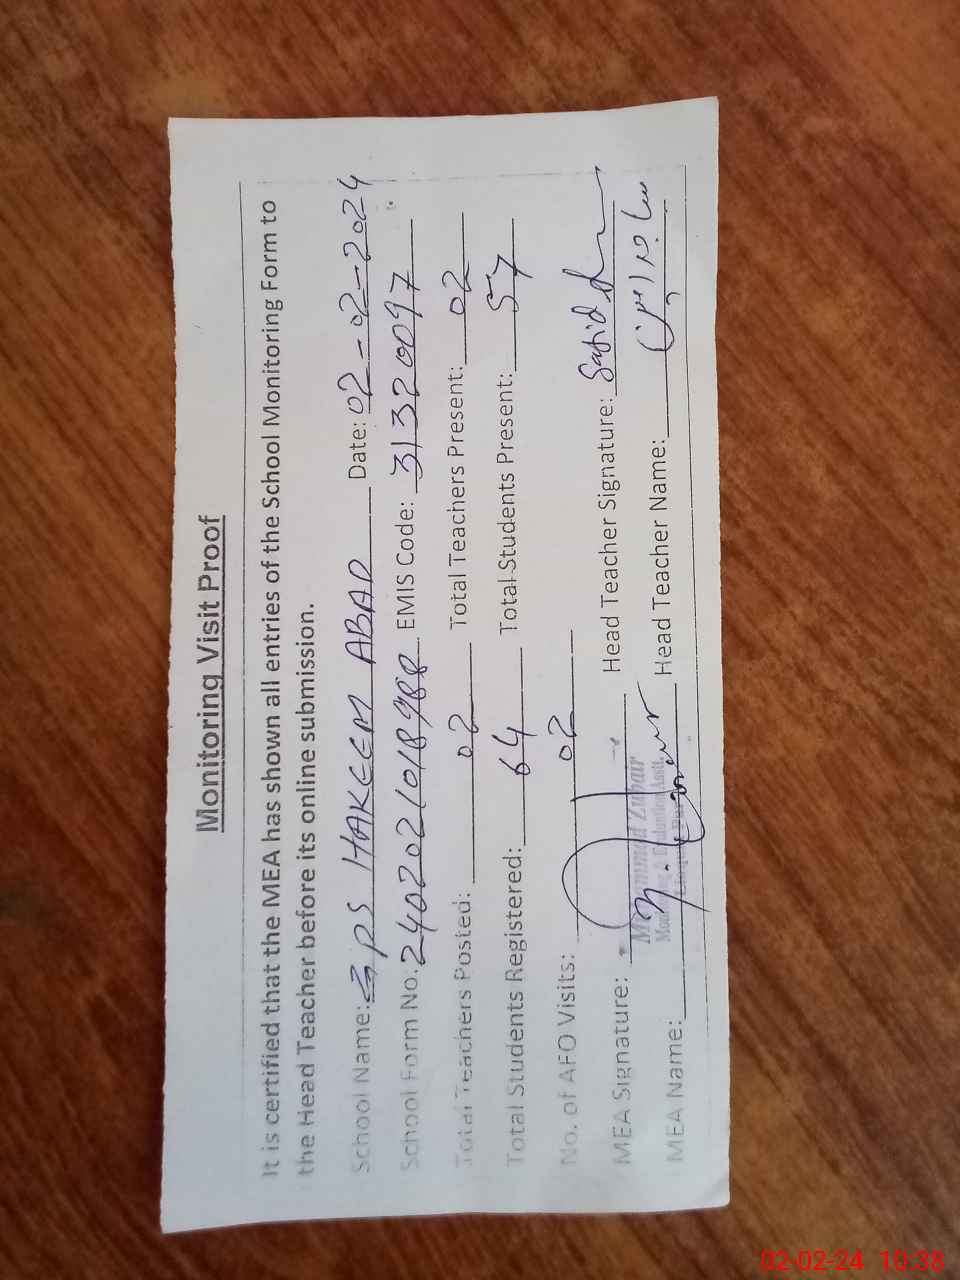 Monitoring Visit Proof
It is certified that the MEA has shown all entries of the School Monitoring Form to
the Head Teacher before its online submission.
School Name: GPS HAKEEM ABAD Date: 02-02-2024
School Form No. 240202101898 EMIS Code: 31320097
Total Teachers Posted: 02 Total Teachers Present: 02
Total Students Registered: 64 Total Students Present: 57
No. of AFO Visits: 02
MEA Signature: Head Teacher Signature: Sajid
Muhammad Zubair
Monitoring & Evaluation Asstt.
MEA Name: Head Teacher Name:
02-02-24 10:38